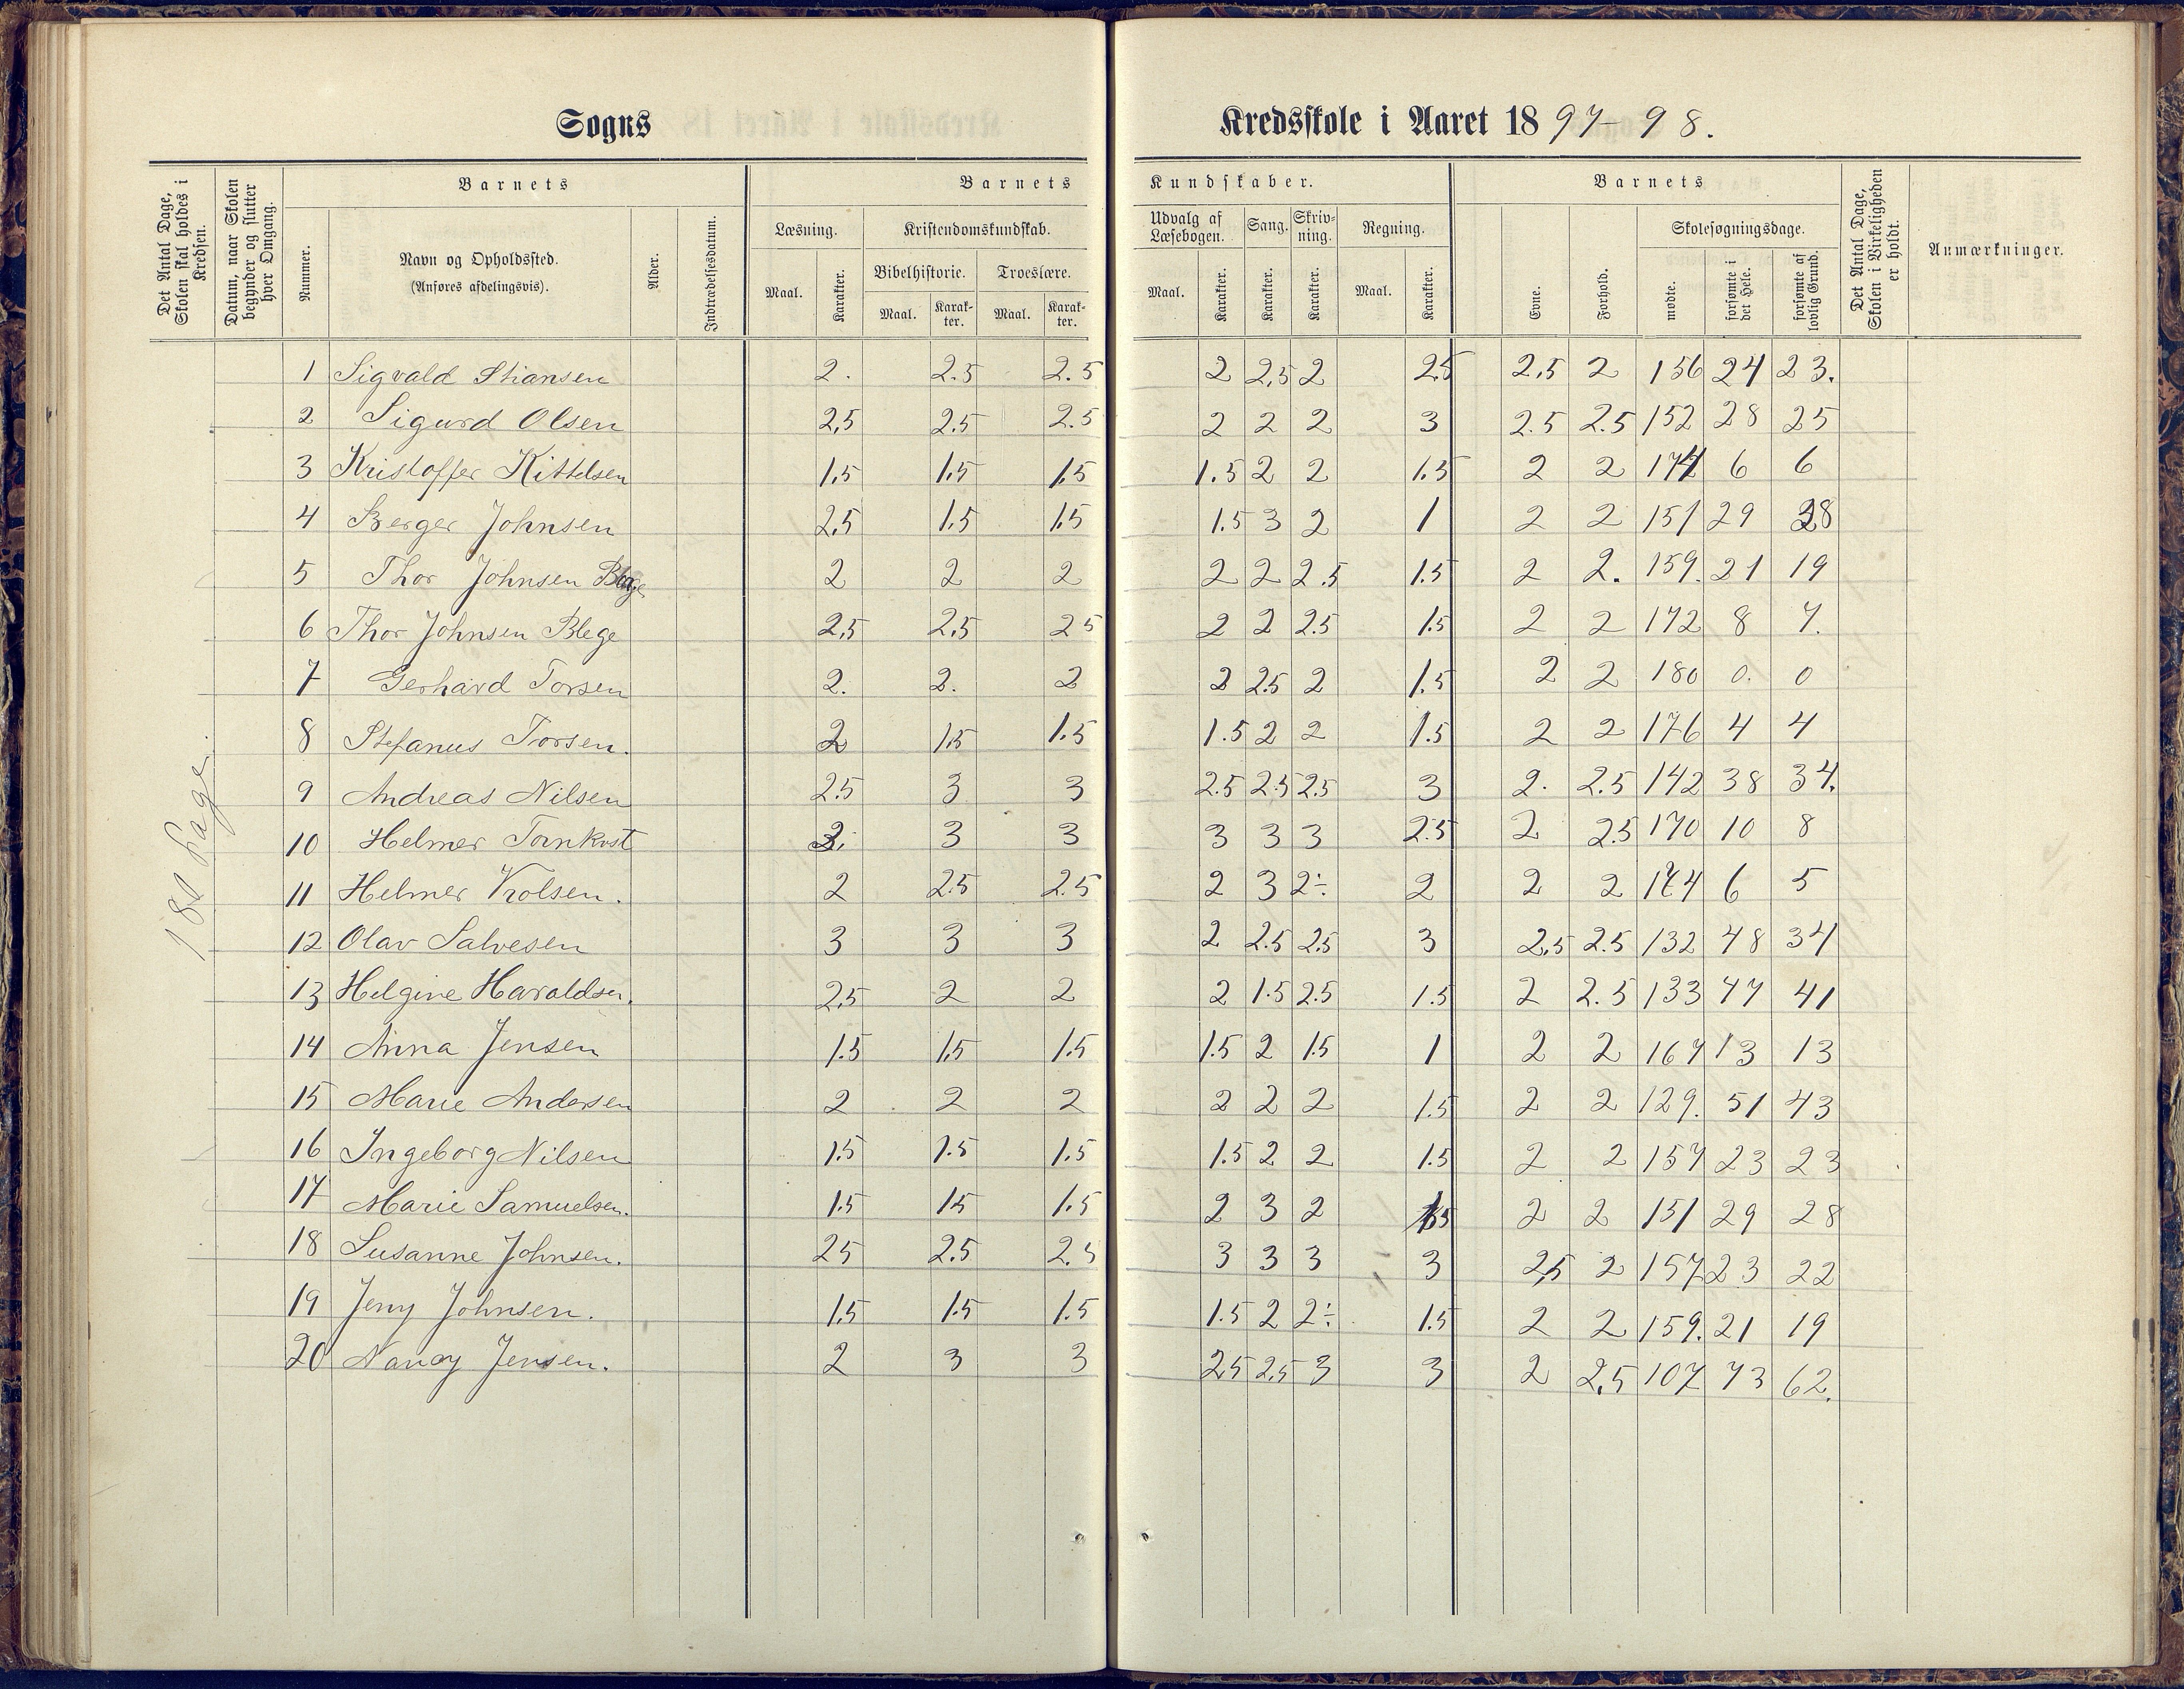 Sogns
Kredsskole i Aaret 1897–98.
Det Antal Dage, Skolen skal holdes i Kredsen.
Datum, naar Skolen begynder og slutter hver Omgang.
Barnets
Nummer.
Navn og Opholdssted.
(Anføres afdelingsvis).
Alder.
Indtrædelsesdatum.
Barnets
Læsning.
Maal.
Karakter.
Kristendomskundskab.
Bibelhistorie.
Maal.
Karakter.
Troeslære.
Maal.
Karakter.
Kundskaber.
Udvalg af Læsebogen.
Maal.
Karakter.
Sang.
Karakter.
Skrivning.
Karakter.
Regning.
Maal.
Karakter.
Barnets
Evne.
Forhold.
Skolesøgningsdage.
mødte.
forsømte i det Hele.
forsømte af lovlig Grund.
Det Antal Dage, Skolen i Virkeligheden er holdt.
Anmærkninger.
180 Dage.
1 Sigvald Stiansen 2. 2.5 2.5 2 2,5 2 2.5 2,5 2 156 24 23.
2 Sigurd Olsen 2,5 2.5 2.5 2 2 2 3 2.5 2.5 152 28 25
3 Kristoffer Kittelsen 1,5 1,5 1,5 1.5 2 2 1.5 2 2 174 6 6
4 Berger Johnsen 2,5 1,5 1,5 1.5 3 2 1 2 2 151 29 28
5 Thor Johnsen 2 2 2 2 2 2.5 1.5 2 2. 159. 21 19
6 Thor Johnsen Blege 2,5 2,5 25 2 2 2.5 1.5 2 2 172 8 7.
7 Gerhard Torsen 2. 2. 2 2 2.5 2 1.5 2 2 180 0. 0
8 Stefanus Torsen. 2 1.5 1.5 1.5 2 2 1.5 2 2 176 4 4
9 Andreas Nilsen 2.5 3 3 2.5 2.5 2.5 3 2. 2.5 142 38 34.
10 Helmer Tornkvst 2. 3 3 3 3 3 2.5 2 2.5 170 10 8
11 Helmer 2 2.5 2.5 2 3 2÷ 2 2 2 174 6 5
12 Olav Salvesen 3 3 3 2 2.5 2.5 3 2,5 2.5 132 48 34
13 Helgine Haraldsen. 2,5 2 2 2 1.5 2.5 1.5 2 2.5 133 47 41
14 Anna Jensen 1.5 1,5 1.5 1.5 2 1.5 1 2 2 167 13 13
15 Marie Andersen 2 2 2 2 2 2 1.5 2 2 129. 51 43
16 Ingeborg Nilsen 1.5 1.5 1.5 1.5 2 2 1.5 2 2 157 23 23
17 Marie Samuelsen. 1.5 15 1.5 2 3 2 1.5 2 2 151 29 28
18 Susanne Johnsen. 25 2.5 2.5 3 3 3 3 2,5 2 157 23 22
19 Jeny Johnsen. 1.5 1.5 1.5 1.5 2 2÷ 1.5 2 2 159. 21 19
20 Nancy Jensen. 2 3 3 2.5 2,5 3 3 2 2,5 107 73 62.